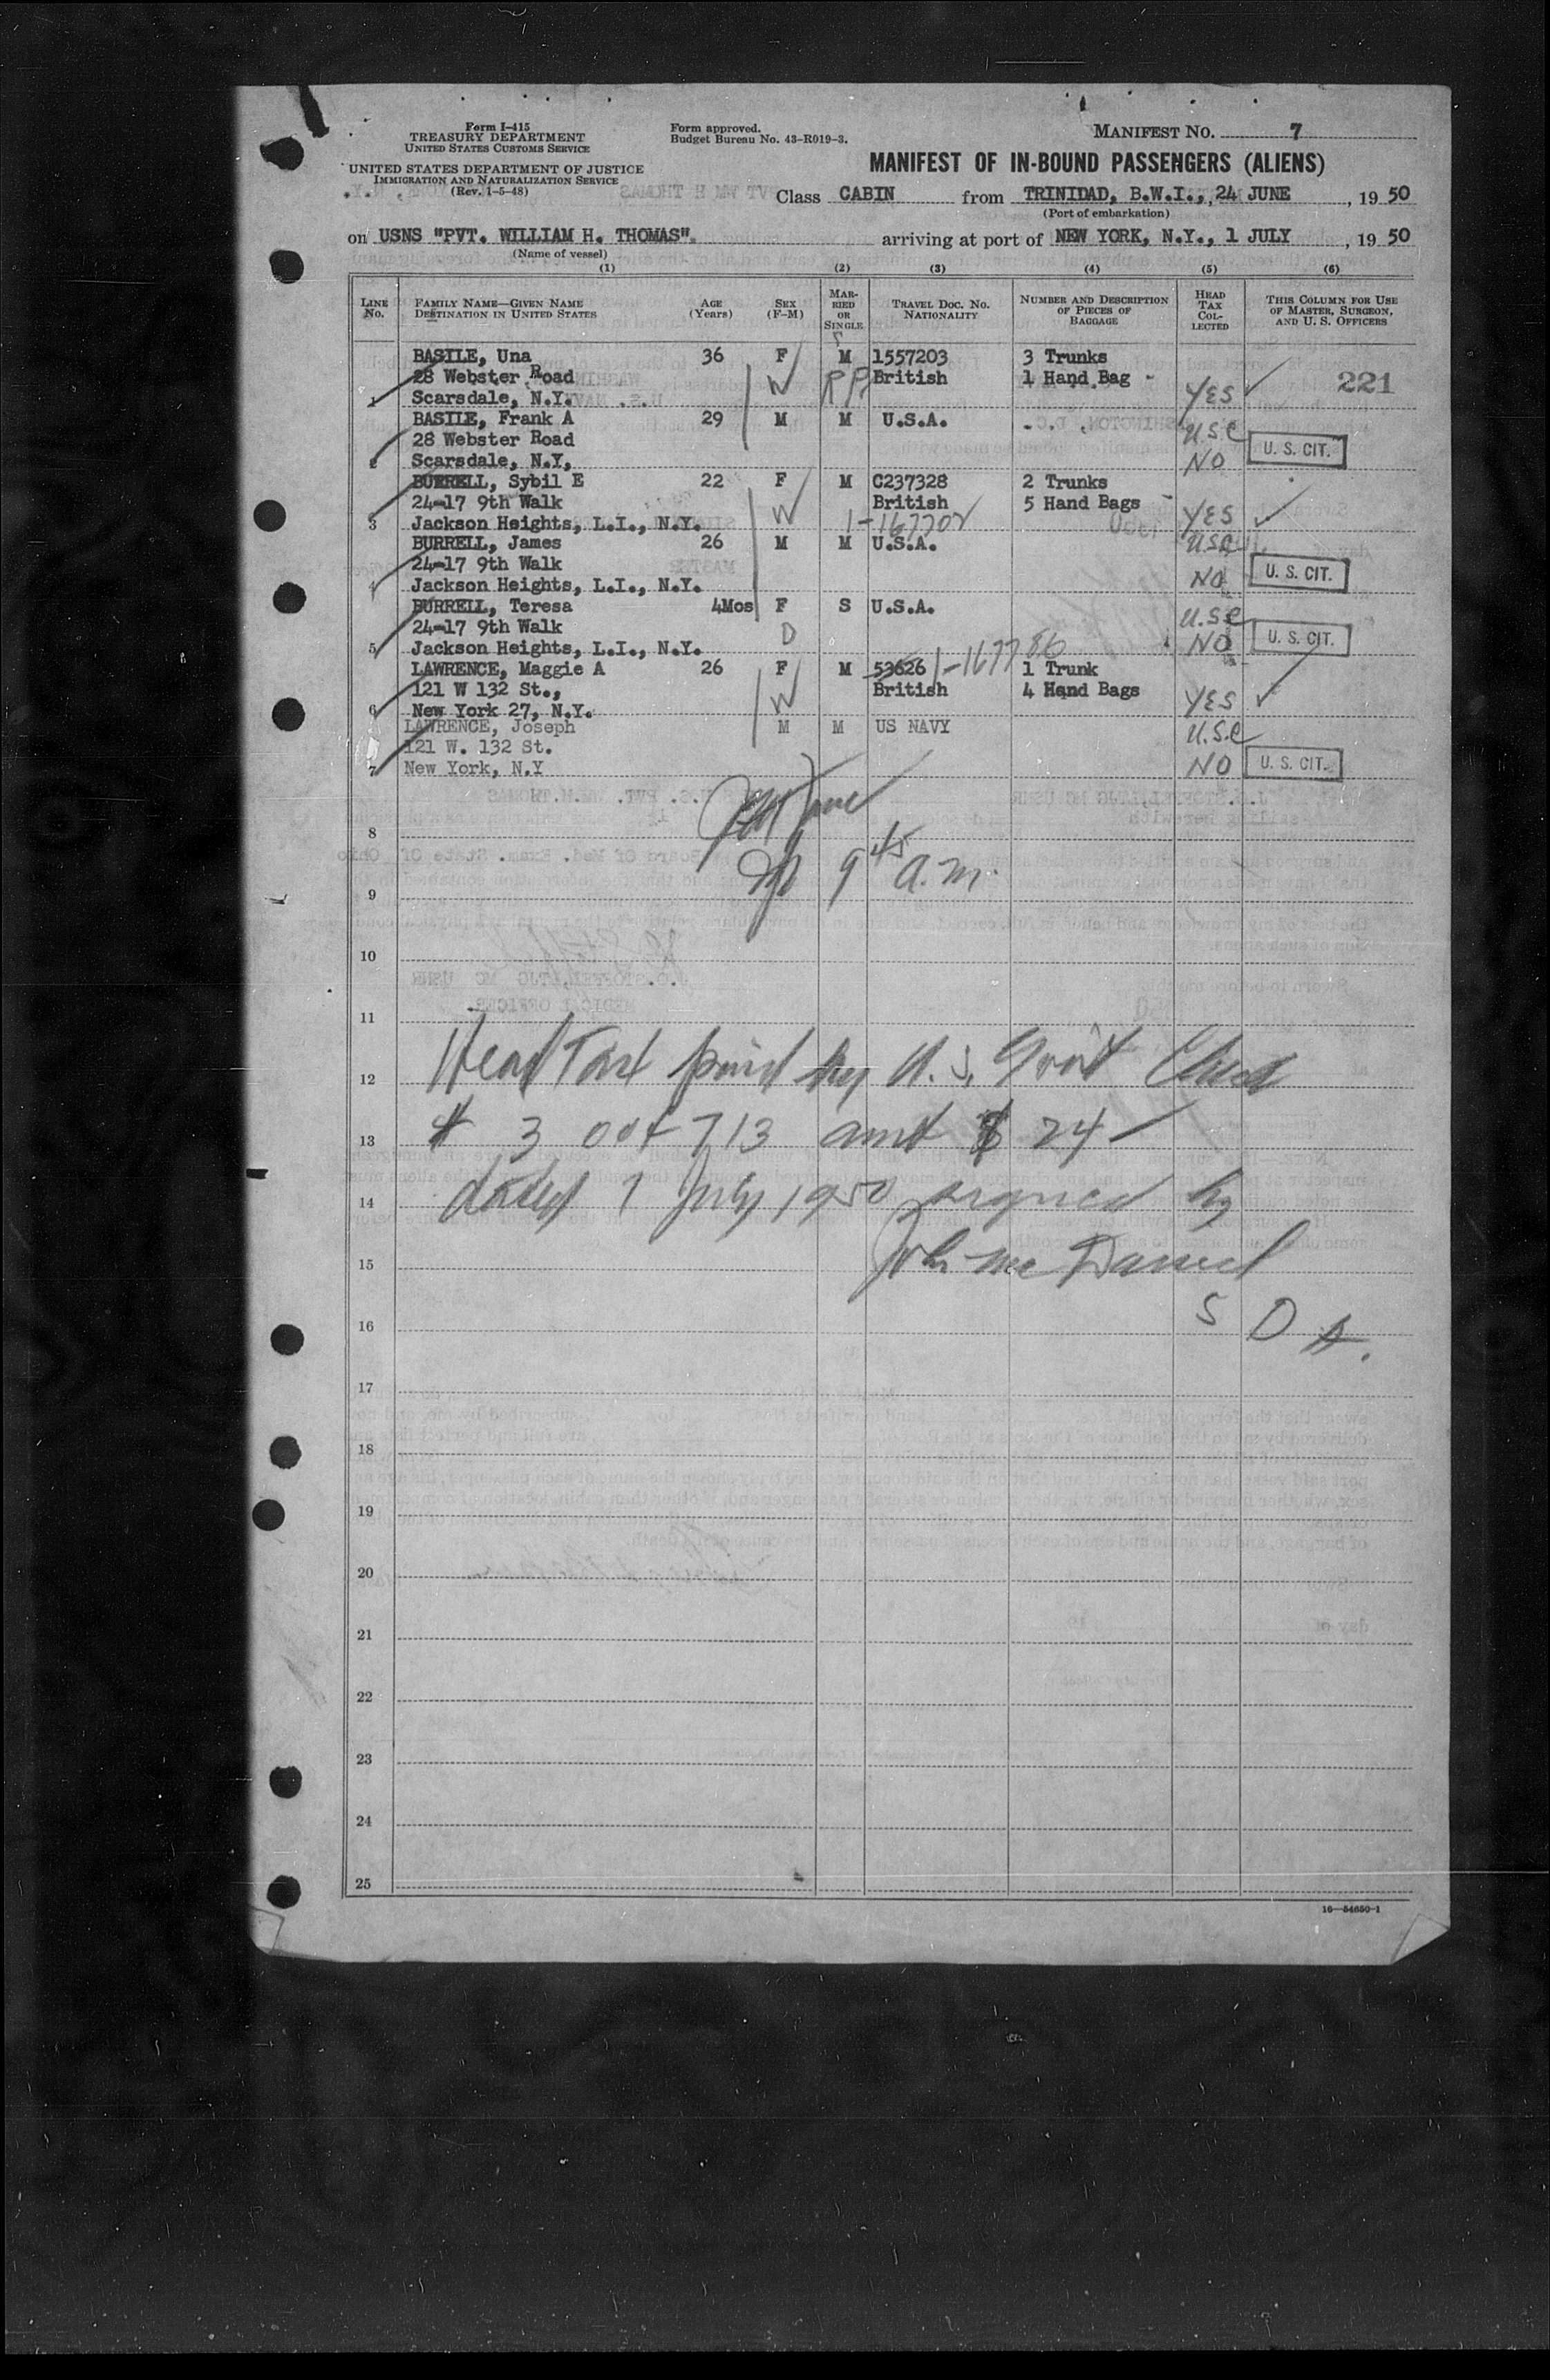 Form I-415
TREASURY DEPARTMENT
UNITED STATES CUSTOMS SERVICE
UNITED STATES DEPARTMENT OF JUSTICE
IMMIGRATION AND NATURALIZATION SERVICE
(Rev. 1-5-48)
Form approved.
Budget Bureau No. 43-R019-3.
MANIFEST NO. 7
MANIFEST OF IN-BOUND PASSENGERS (ALIENS)
Class CABIN from TRINIDAD, B.W.I., 24 JUNE, 19 50
(Port of embarkation)
on USNS "PVT. WILLIAM H. THOMAS". arriving at port of NEW YORK, N.Y., 1 JULY, 19 50
(Name of vessel)
(1) (2) (3) (4) (5) (6)
LINE No. FAMILY NAME—GIVEN NAME DESTINATION IN UNITED STATES AGE (Years) SEX (F-M) MARRIED OR SINGLE TRAVEL DOC. NO. NATIONALITY NUMBER AND DESCRIPTION OF PIECES OF BAGGAGE HEAD TAX COLLECTED THIS COLUMN FOR USE OF MASTER, SURGEON, AND U. S. OFFICERS
BASILE, Una 36 F M 1557203 3 Trunks
28 Webster Road W RP British 1 Hand Bag 221
1 Scarsdale, N.Y. YES
BASILE, Frank A 29 M M U.S.A.
28 Webster Road U.S.C U. S. CIT.
2 Scarsdale, N.Y, NO
BURRELL, Sybil E 22 F M C237328 2 Trunks
24-17 9th Walk W British 5 Hand Bags
3 Jackson Heights, L.I., N.Y. 1-167702 YES
BURRELL, James 26 M M U.S.A. U.S.C
24-17 9th Walk U. S. CIT.
4 Jackson Heights, L.I., N.Y. NO
BURRELL, Teresa 4Mos F S U.S.A. U.S.C
24-17 9th Walk D U. S. CIT.
5 Jackson Heights, L.I., N.Y. NO
LAWRENCE, Maggie A 26 F M 53626 1-167786 1 Trunk
121 W 132 St., W British 4 Hand Bags
6 New York 27, N.Y. YES
LAWRENCE, Joseph M M US NAVY U.S.C
121 W. 132 St.
7 New York, N.Y NO U. S. CIT.
8
9 9 45 a.m.
10
11
12 Head Tax paid by U.S. Gov't Check
13 # 3 004 713 amt $ 24
14 dated 1 July 1950 signed by
15 John Mc Daniel
16 S D A.
17
18
19
20
21
22
23
24
25
16—54650-1